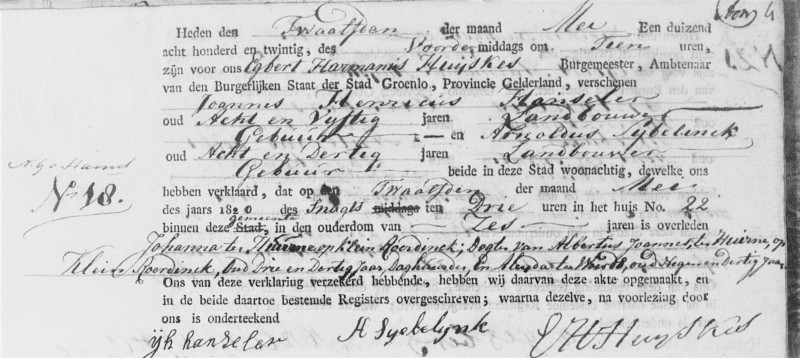 Heden den Twaalfden der maand Mei Een duizend
acht honderd en twintig, des Voorde middags om Teen uren,
zijn voor ons Egbert Harmanis Huijskes Burgemeester, Ambtenaar
van den Burgerlijken Staat der Stad Groenlo, Provincie Gelderland, verschenen
Joannes Henricus Hanseler
oud Acht en Vijftig jaren Landbouwer
Gebuur en Arnoldus Sybelinck
oud Acht en Dertig jaren Landbouwer
Gebuur beide in deze Stad woonachtig, dewelke ons
No 18.
hebben verklaard, dat op den Twaalfden der maand Mei
des jaars 1820 des Snagts middags ten Drie uren in het huis No. 22
gemeente
binnen deze Stad, in den ouderdom van Zes jaren is overleden
Johanna ter Huirne op klein Roerdinck; Dogter van Albertus Joannes ter Heirne, op
Klein Roerdinck, oud Drie en Dertig Jaar, Daghuurder, En Aleida te Woerds, oud Negen en Dertig Jaar
Ons van deze verklaring verzekerd hebbende, hebben wij daarvan deze akte opgemaakt, en
in de beide daartoe bestemde Registers overgeschreven; waarna dezelve, na voorlezing door
ons is onderteekend
jh hanzeler A Syebelynk EHHuyskes